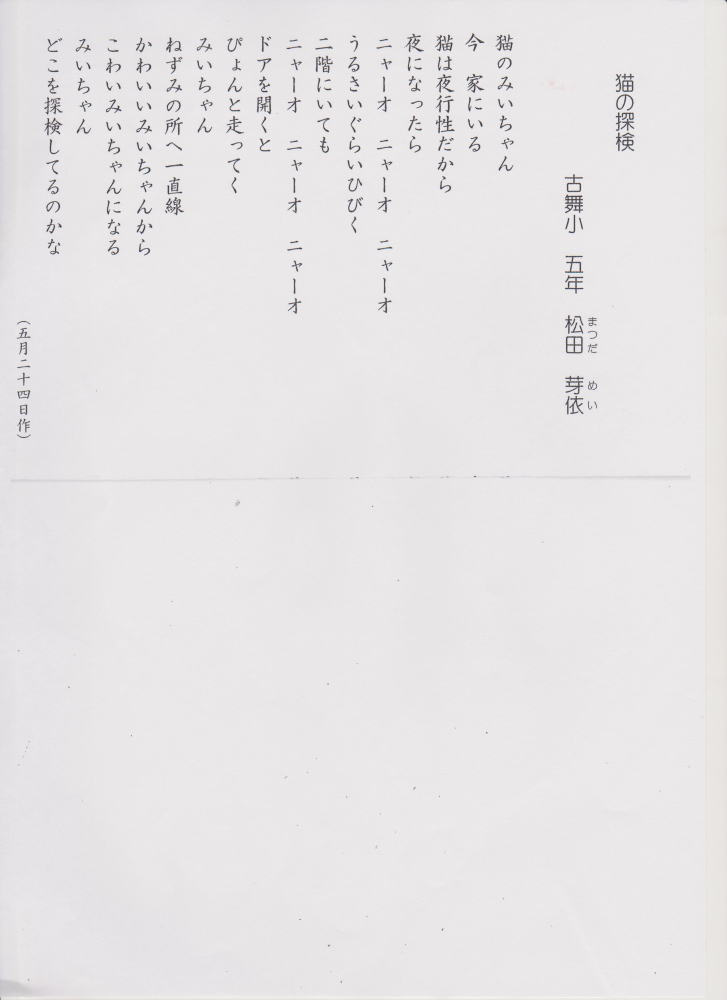 猫の探検
古舞小　五年　松田　芽依
まつだ　めい
猫のみいちゃん
今　家にいる
猫は夜行性だから
夜になったら
ニャーオ　ニャーオ　ニャーオ
うるさいぐらいひびく
二階にいても
ニャーオ　ニャーオ　ニャーオ
ドアを開くと
ぴょんと走ってく
みいちゃん
ねずみの所へ一直線
かわいいみいちゃんから
こわいみいちゃんになる
みいちゃん
どこを探検してるのかな
（五月二十四日作）